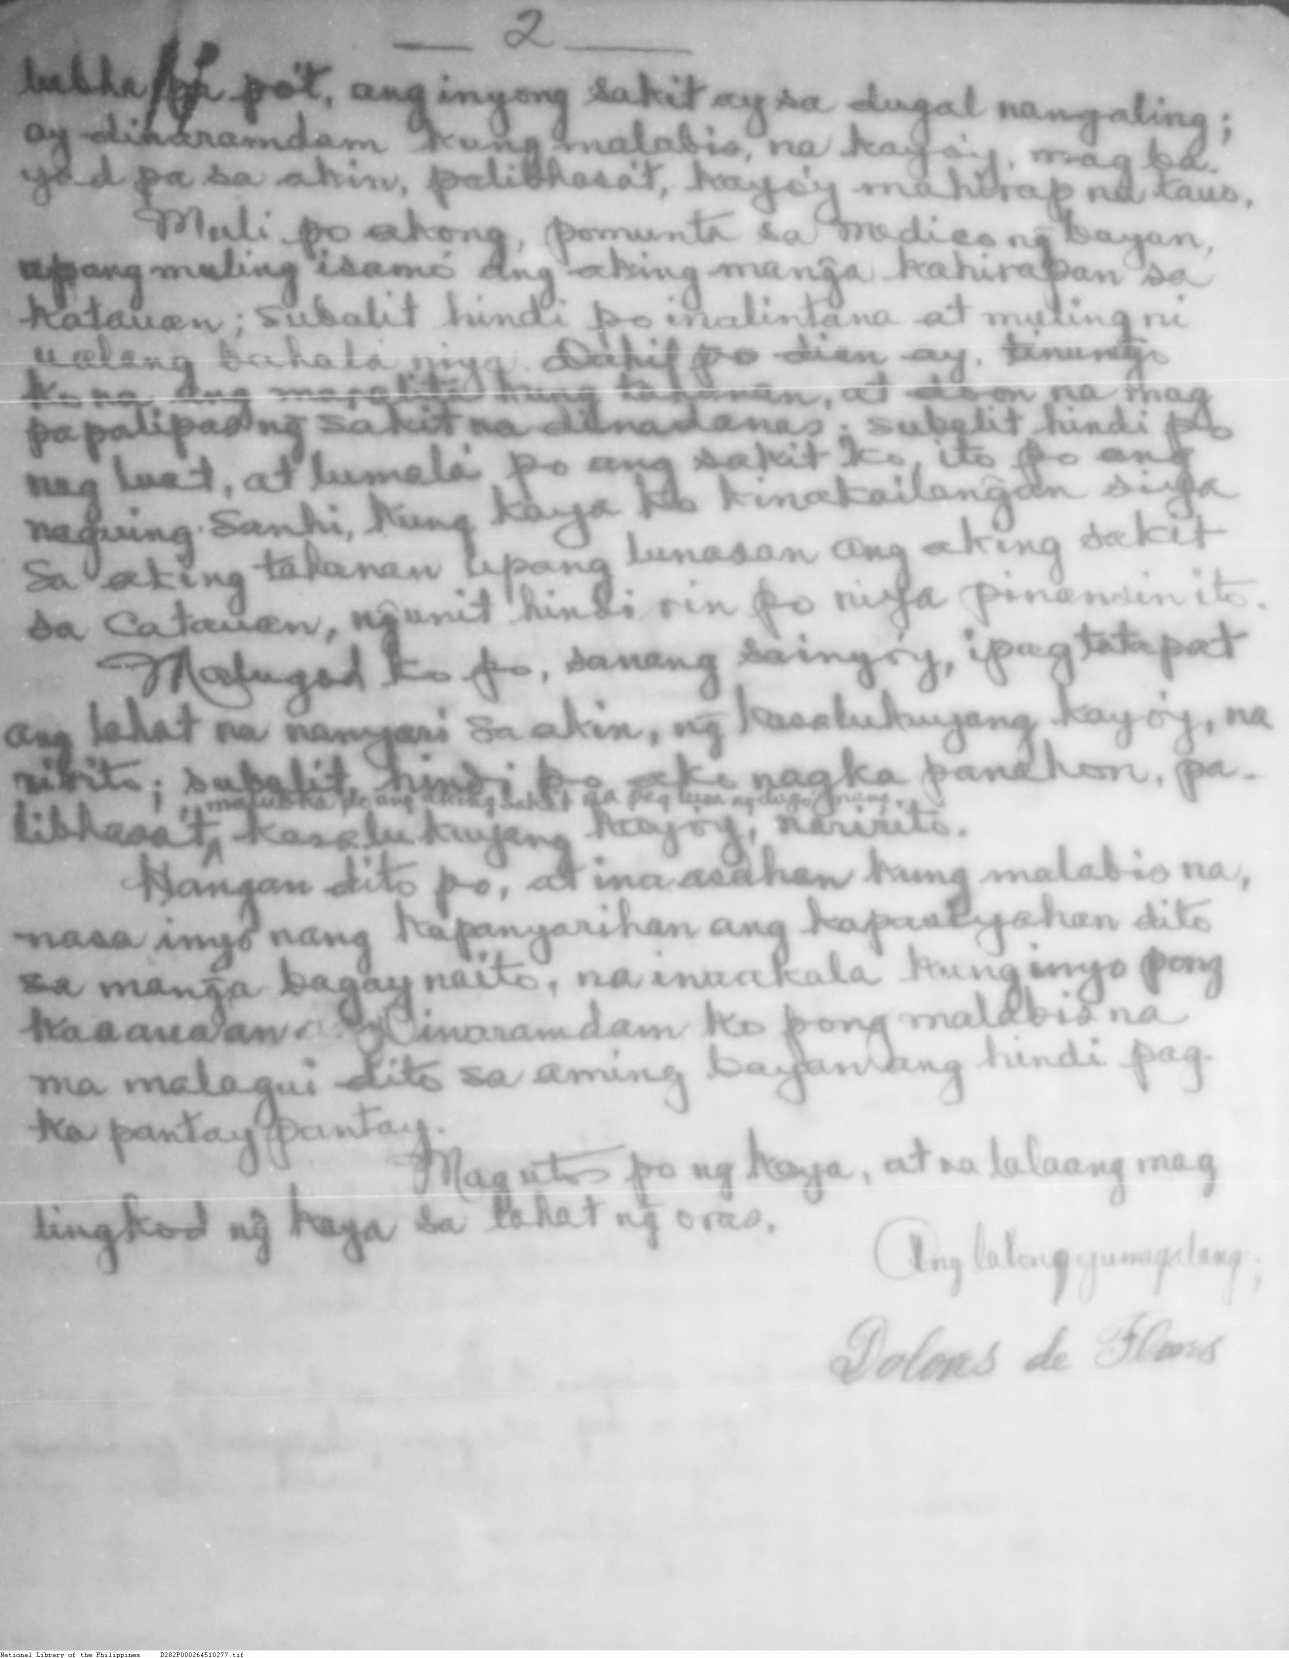 — 2 —
lubha pa po't, ang inyong sakit ay sa dugal nangaling;
ay dinaramdam kung malabis, na kayo'y, mag ba-
yad pa sa akin, palibhasa't, kayo'y mahirap na tauo,
Muli po akong, pomunta sa medico ng̃ bayan,
upang muling isamo ang aking mang̃a kahirapan sa
katauan; subalit hindi po inalintana at muling ni
ualang bahala niya. Dahil po dien ay, tinung̃o
ko na ang mapalitá kung tahanan, at doon na mag
papalipas ng̃ sakit na dinadanas; subalit hindi po
nag luat, at lumalá po ang sakit ko, ito po ang
naguing sanhi, kung kaya ko kinakailang̃an siya
sa aking tahanan upang lunasan ang aking sakit
sa catauan, ng̃unit hindi rin po niya pinansin ito.
Malugod ko po, sanang sainyo'y, ipagtatapat
ang lahat na namyari sa akin, ng̃ kasalukuyang kayo'y, na
ririto; subalit, hindi po ako nagka panahon, pa-
malubha po ang aking sakit na pag
libhasa't, kasalukuyang kayo'y, naririto.
Hangan dito po, at inaasahan kung malabis na,
nasa inyo nang kapanyarihan ang kapasiyahan dito
sa mang̃a bagay naito, na inaakala kung inyo pong
kaaauaan. Dinaramdam ko pong malabis na
ma malagui dito sa aming bayan ang hindi pag-
ka pantay pantay.
Mag utos po ng kaya, at na lalaang mag
lingkod ng̃ kaya sa lahat ng̃ oras.
Ang lalong gumagalang;
Dolores de Flores
National Library of the Philippines D282P000264510277.tif